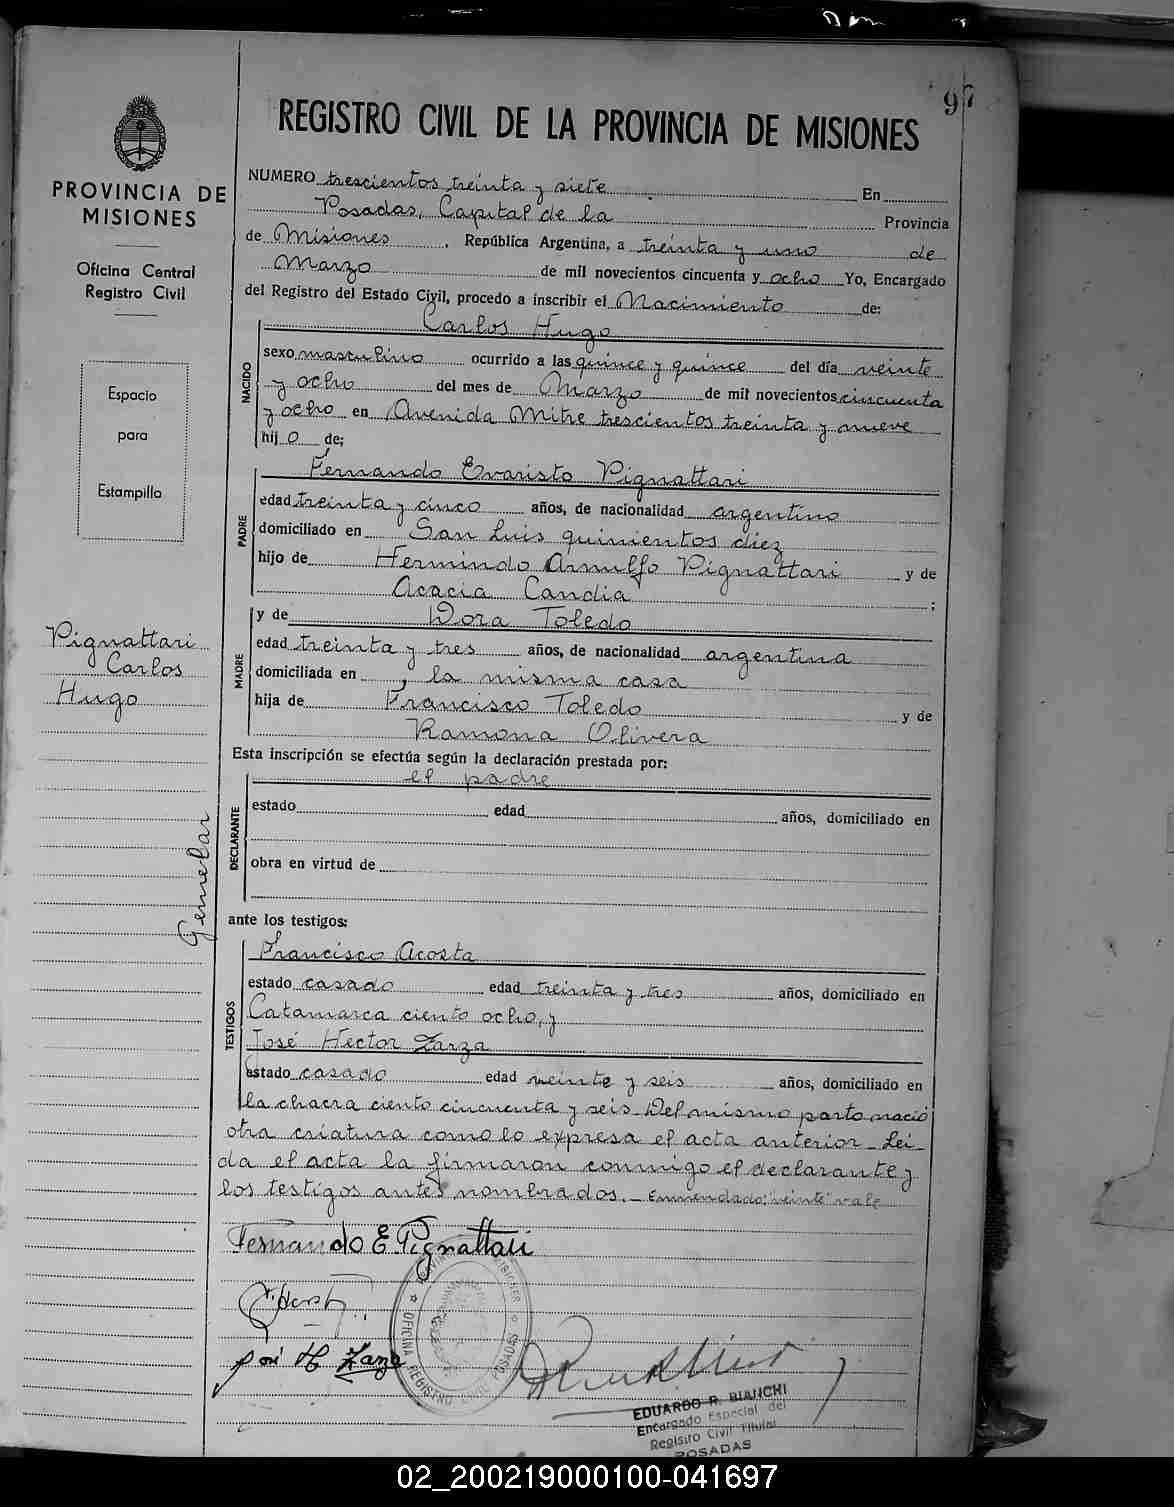 97
REGISTRO CIVIL DE LA PROVINCIA DE MISIONES
PROVINCIA DE
MISIONES
Oficina Central
Registro Civil
Espacio
para
Estampilla
Pignattari
Carlos
Hugo
Gemelar
NUMERO trescientos treinta y siete En
Posadas, Capital de la Provincia
de Misiones, República Argentina, a treinta y uno de
Marzo de mil novecientos cincuenta y ocho Yo, Encargado
del Registro del Estado Civil, procedo a inscribir el Nacimiento de:
Carlos Hugo
NACIDO
sexo masculino ocurrido a las quince y quince del día veinte
y ocho del mes de Marzo de mil novecientos cincuenta
y ocho en Avenida Mitre trescientos treinta y nueve
hijo de;
Fernando Evaristo Pignattari
PADRE
edad treinta y cinco años, de nacionalidad argentino
domiciliado en San Luis quinientos diez
hijo de Hermindo Arnulfo Pignattari y de
Acacia Candia ;
y de Dora Toledo
MADRE
edad treinta y tres años, de nacionalidad argentina
domiciliada en , la misma casa
hija de Francisco Toledo y de
Ramona Olivera
Esta inscripción se efectúa según la declaración prestada por:
el padre
DECLARANTE
estado edad años, domiciliado en
obra en virtud de
ante los testigos:
Francisco Acosta
TESTIGOS
estado casado edad treinta y tres años, domiciliado en
Catamarca ciento ocho, y
José Hector Zarza
estado casado edad veinte y seis años, domiciliado en
la chacra ciento cincuenta y seis. Del mismo parto nació
otra criatura como lo expresa el acta anterior. Lei-
da el acta la firmaron conmigo el declarante y
los testigos antes nombrados. - Enmendado: "veinte" vale
Fernando E Pignattari
José H Zarza
OFICINA REGISTRO CIVIL POSADAS
EDUARDO R. BIANCHI
Encargado Especial del
Registro Civil Titular
POSADAS
02_200219000100-041697